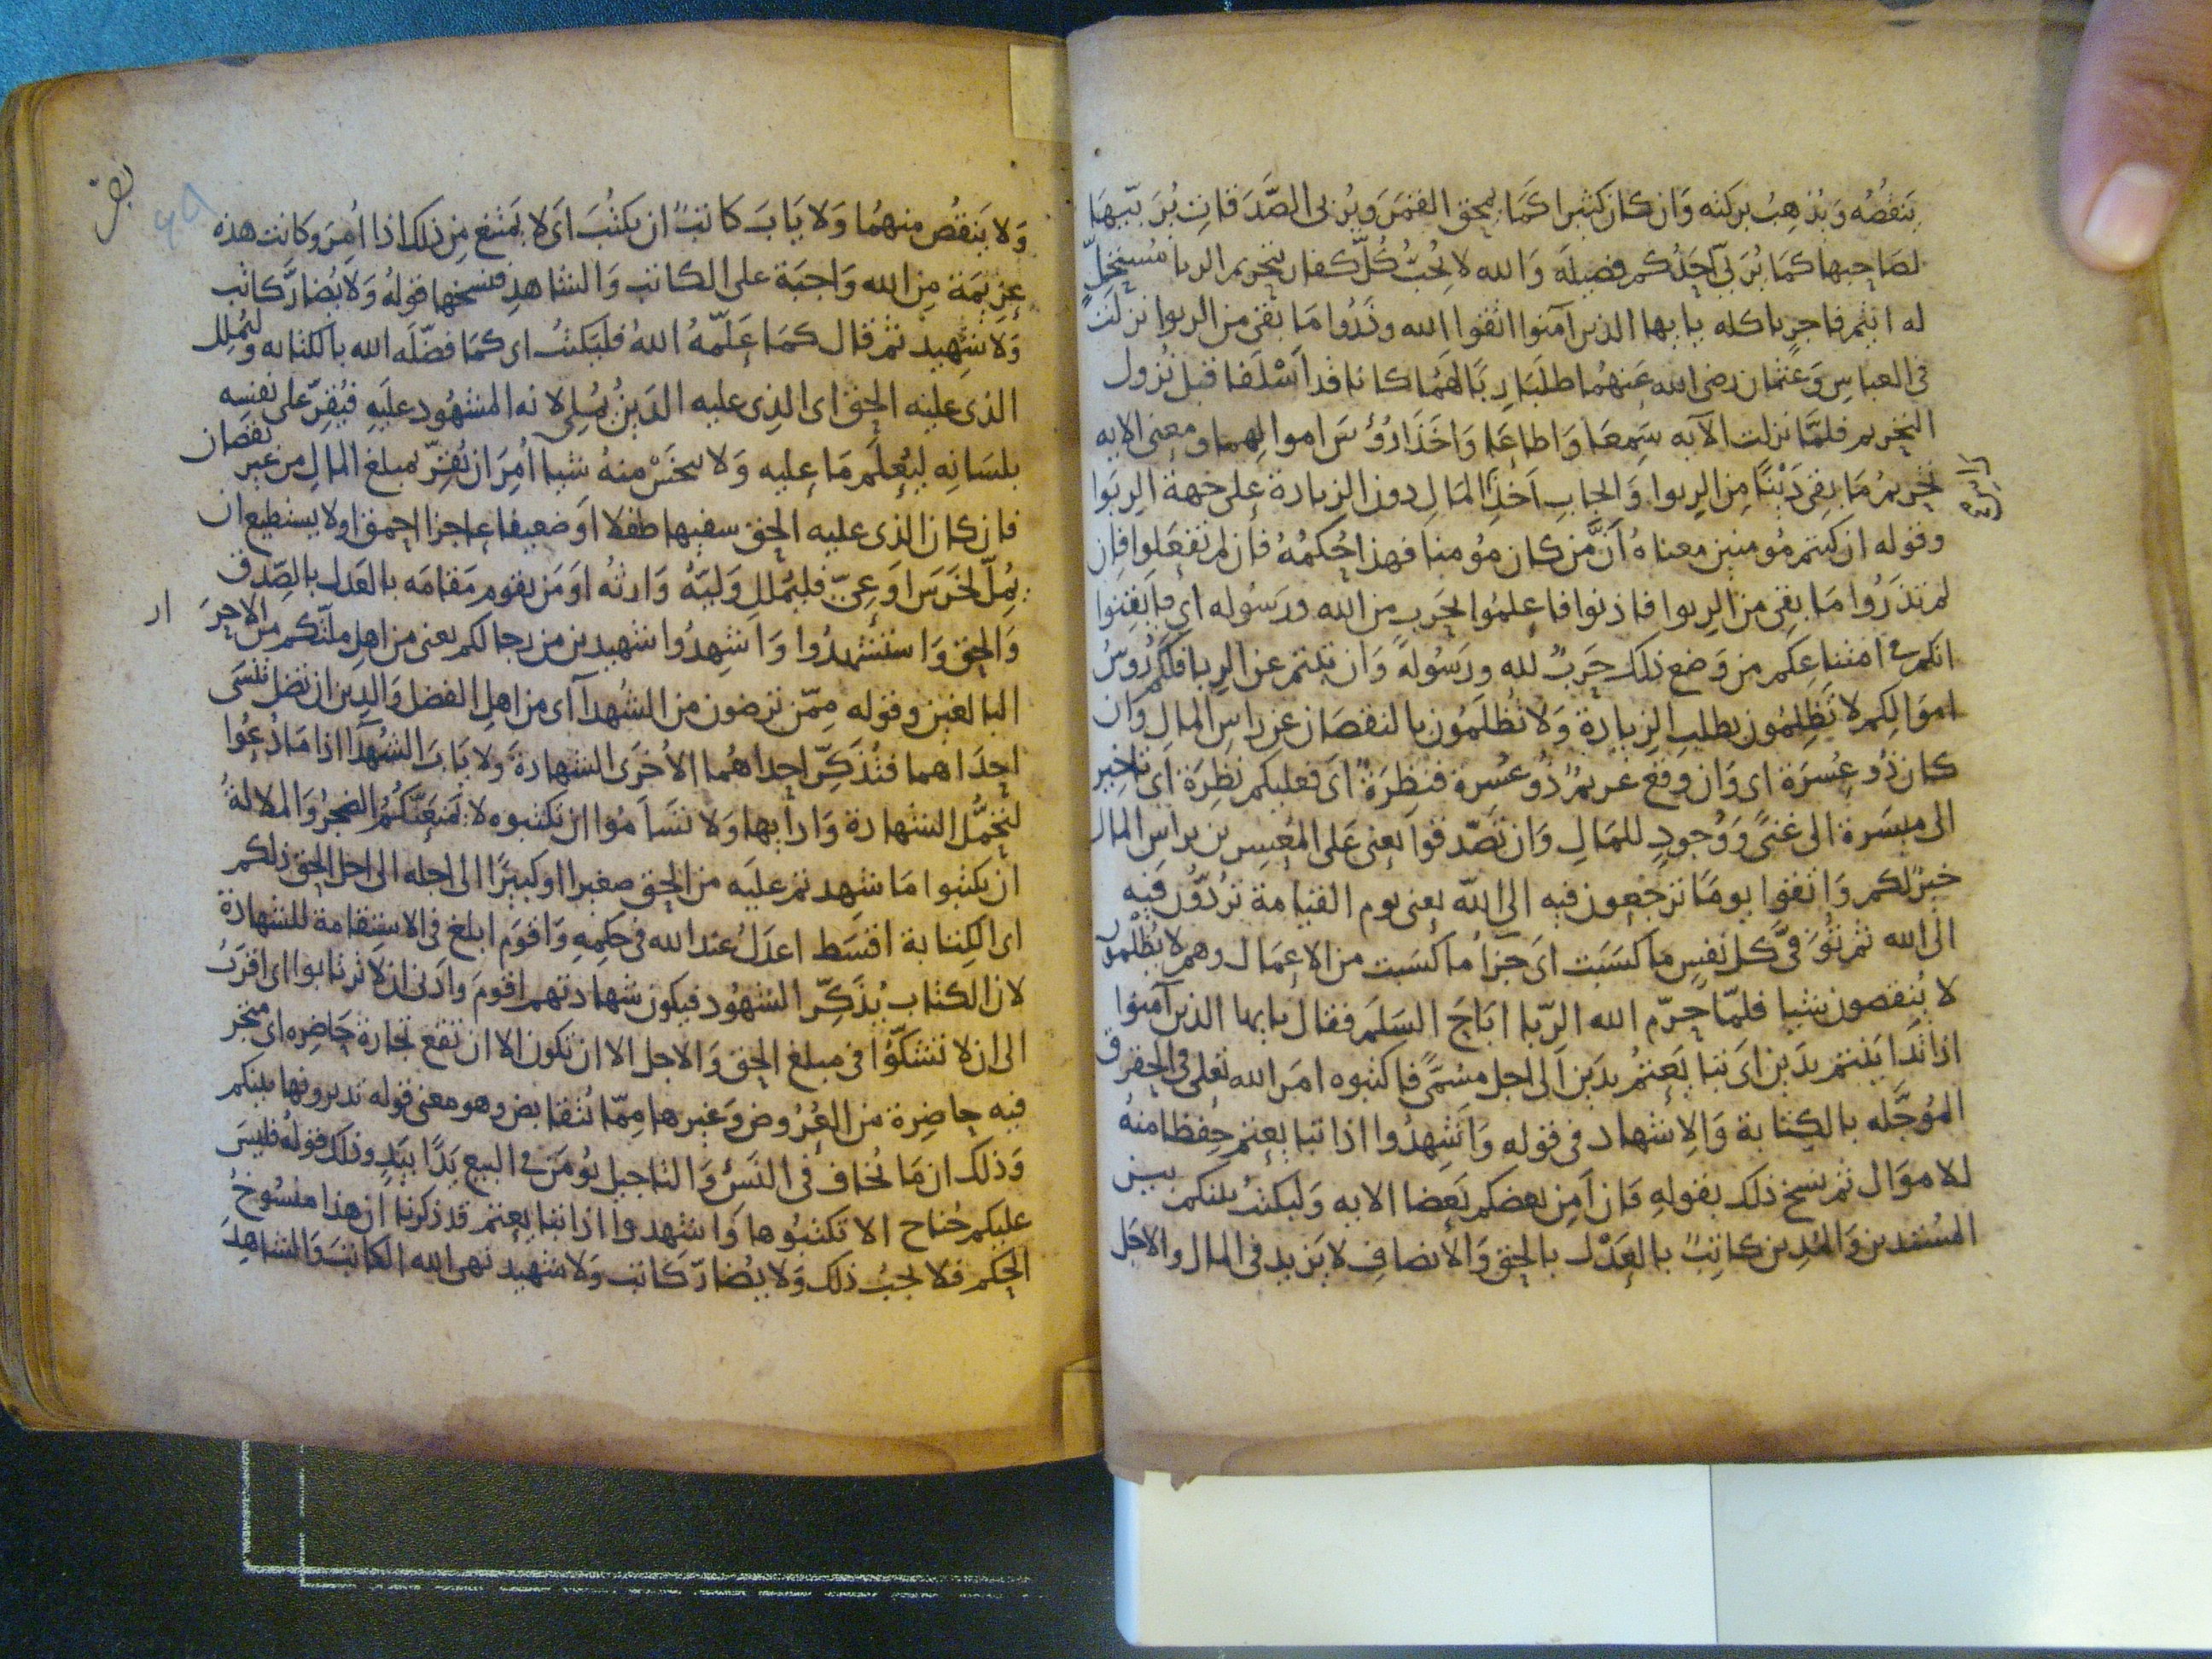 ينقصُه وَيُذهِبُ بركته وَان كان كثيرا كَمَا يمحق القمَرَ ويُربى الصَّدَقات يُرَبّيهَا
لصَاحِبهَا كمَا يُرَبّى اَحَدُكم فصيلَه وَالله لا يُحبُّ كُلّ كفار بتحريم الربا مُستحِلٍّ
له اثيم فاجر باكله يا يها الذين آمنوا اتقوا الله وذَرُوا مَا بقى من الربوا نزلت
فى العباس وَعثمان رضى الله عَنهُما طلبَا رِبًا لهمُا كانا قد اَسْلَفا قبل نُزول
التحريم فلمَّا نزلت الآيه سَمِعَا وَاطاعَا وَاخَذا رُؤسَ اموالهما ومعنى الايه
تحريمُ مَا بقى دَيْنًا مِن الرِبوا وَايجاب اَخذِ المَالِ دون الزيادة على جهة الرِبَوا
وقوله ان كنتم مُومنين معناهُ اَنَّ مَن كان مُومنا فهذا حُكمُهُ فان لم تفعَلوا فان
لم تذَرُوا مَا بقى من الرِبوا فاذنوا فاعلمُوا بحَرب من الله ورَسُوله اى فايقنوا
انكم فى امتناعكم من وَضع ذلك حَربٌ لله ورَسُوله وَان تبتم عن الرِبا فلكم رُوسُ
اموَالكم لا تَظلِمُون بطلب الزيادة وَلا تُظلَمُون بالنقصَان عن راس المال وَان
كان ذُو عُسرَة اى وَان وقع غريمٌ ذُو عُسرة فنظِرَةٌ اىَ فعليكم نظِرَة اى تاخير
الى ميسَرة الى غنىً وَوُجودٍ للمَالِ وَان تصّدقوا يعنى عَلى المعسِرين براس المال
خيرٌ لكم وَاتقوا يومًا ترجعون فيه الى الله يعنى يوم القيامة تردّون فيه
الى الله ثم تُوَفىَّ كل نفسٍ مَا كسَبَت اىَ جزآ ما كسَبت من الاعمَال وهم لا يُظْلمون
لا يُنقصون شيا فلمّا حرّم الله الرّبا ابَاحَ السَلَم فقال يا يها الذين آمنوا
اذا تدَاينتم بدَين اى تبايَعتُم بدَين الى اجل مسَمًى فاكتبوه امَر الله تعلى فى الحقوق
المُوجَّله بالكِتابة وَالاشهاد فى قولهِ وَاَشهِدُوا اذا تبايعتم حِفظا منهُ
للاموَال ثم نسخ ذلك بقولهِ فان اَمِن بعضكم بَعضا الايه وَليكتبْ بينكم بين
المُستَدين وَالمُدِين كاتِبٌ بالعَدْل بالحق وَالانصافِ لا يَزيد فى المال والاجَل
وَلا يَنقُص منهُما وَلا يَابَ كاتبٌ ان يكتُبَ اىَ لا يَمتنع مِن ذلك اذا اُمِرَ وكانت هذه
عزيمَة مِن الله وَاجبَة على الكاتب وَالشاهدِ فنسخها قولُهُ وَلا يُضارَّ كاتب
وَلا شَهيدٌ ثم قال كمَا عَلَّمَهُ اللهُ فليَكتبُ اى كمَا فضّلَه الله بالكتابه وليُملِل
الذى علَيه الحق اى الذِى عليه الدَين يُملِى لانه المشهُود عَليَهِ فيُقِرّ على نفسه
بلسَانِه ليُعلَم مَا عليه وَلا يبخَسْ منهُ شيا اُمِرَ ان يُقِرّ بمبلغ المالِ من غير نقصان
فان كان الذى عليه الحق سفيها طفلا اوَ ضعيفا عاجزا احمق او لا يستطيع ان
يُمِلّ لخرَسَ اوَ عِىّ فليُملل وَليّهُ وَارثهُ اوَ مَن يقوم مَقامَه بالعَدل بالصِدق
وَالحق وَاستشهدُوا وَاَشهِدُوا شهيدين من رجالكم يعنى من اهل ملتكم من الاحرَ ار
البالغين وقوله مِمّن ترضون من الشُهدآ اى من اهل الفضل وَالدِين ان تضل تنسَى
احدَاهما فتُذكِّر احداهُما الاُخرَى الشهادة وَلا يَابَ الشُهدَآ اذا مَا دُعُوا
لتحمُّل الشهادة وَادآيها وَلا تسَاَمُوا ان تكتبوه لا يَمنعنّكُمُ الضجرُ وَالملالةُ
ان يكتبوا مَا شهدتم عليَه من الحق صغيرا او كبيرًا الى اجله الى اجل الحق ذلكم
اى الكِتابة اقسَط اعدَلُ عند الله فى حُكمِهِ وَاقوَم ابلغ فى الاستقامة للشهادة
لان الكتاب يُذَكِّر الشهُود فيكون شهادتهم اقومَ وادَنى ان لا ترتابوا اى اقرَبُ
الى ان لا تشكّوُا فى مبلغ الحق وَالاجل الا ان تكون الا ان تقع تجارة حَاضِره اى متجر
فيه حاضِرة من العُرُوض وَغيرها مِمّا يُتقابض وهو معنى قوله تديرونها بينكم
وَذلك ان مَا يُخاف فى النَسْئِ وَالتاجيل يُومَن فى البيع يَدًا بيَدٍ وذلك قولُهُ فليسَ
عليكم جُناح الا تكتبُوها وَاشهدوا اذا تبايعتم قد ذكرنا ان هذا منسُوخُ
الحكم فلا يجبُ ذلك وَلا يُضارّ كاتب وَلا شهيد نهى الله الكاتبَ وَالشاهِدَ